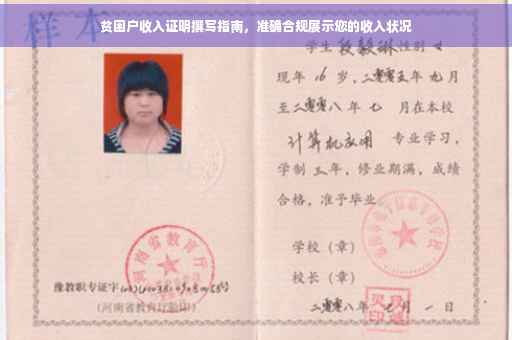 贫困户收入证明撰写指南，准确合规展示您的收入状况
样本
学生段毅琳性别女
现年16岁，二零零五年九月
至二零零八年七月在本校
计算机应用专业学习，
学制三年，修业期满，成绩
合格，准予毕业。
学校（章）
校长（章）
二零零八年七月一日
河南省教育厅
豫教职专证字
（河南省教育厅验印）